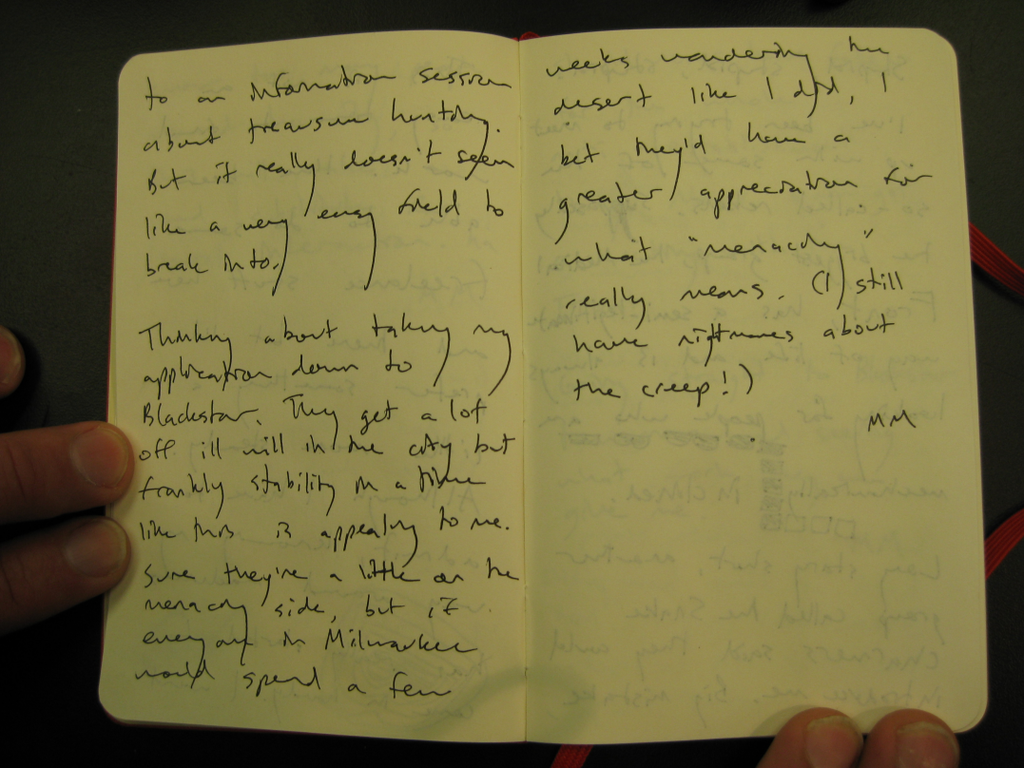 to an information session
about treasure hunting.
But it really doesn't seem
like a very easy field to
break into.
Thinking about taking my
application down to
Blackstar. They get a lot
off ill will in the city but
frankly stability in a time
like this is appealing to me.
Sure they're a little on the
menacing side, but if
everyone in Milwaukee
would spend a few
weeks wandering the
desert like I did, I
bet they'd have a
greater appreciation for
what "menacing"
really means. (I still
have nightmares about
the creep!)
MM